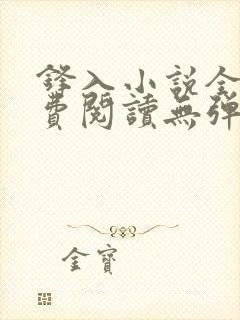 鋒入小說全
費閱讀無彈
金寶